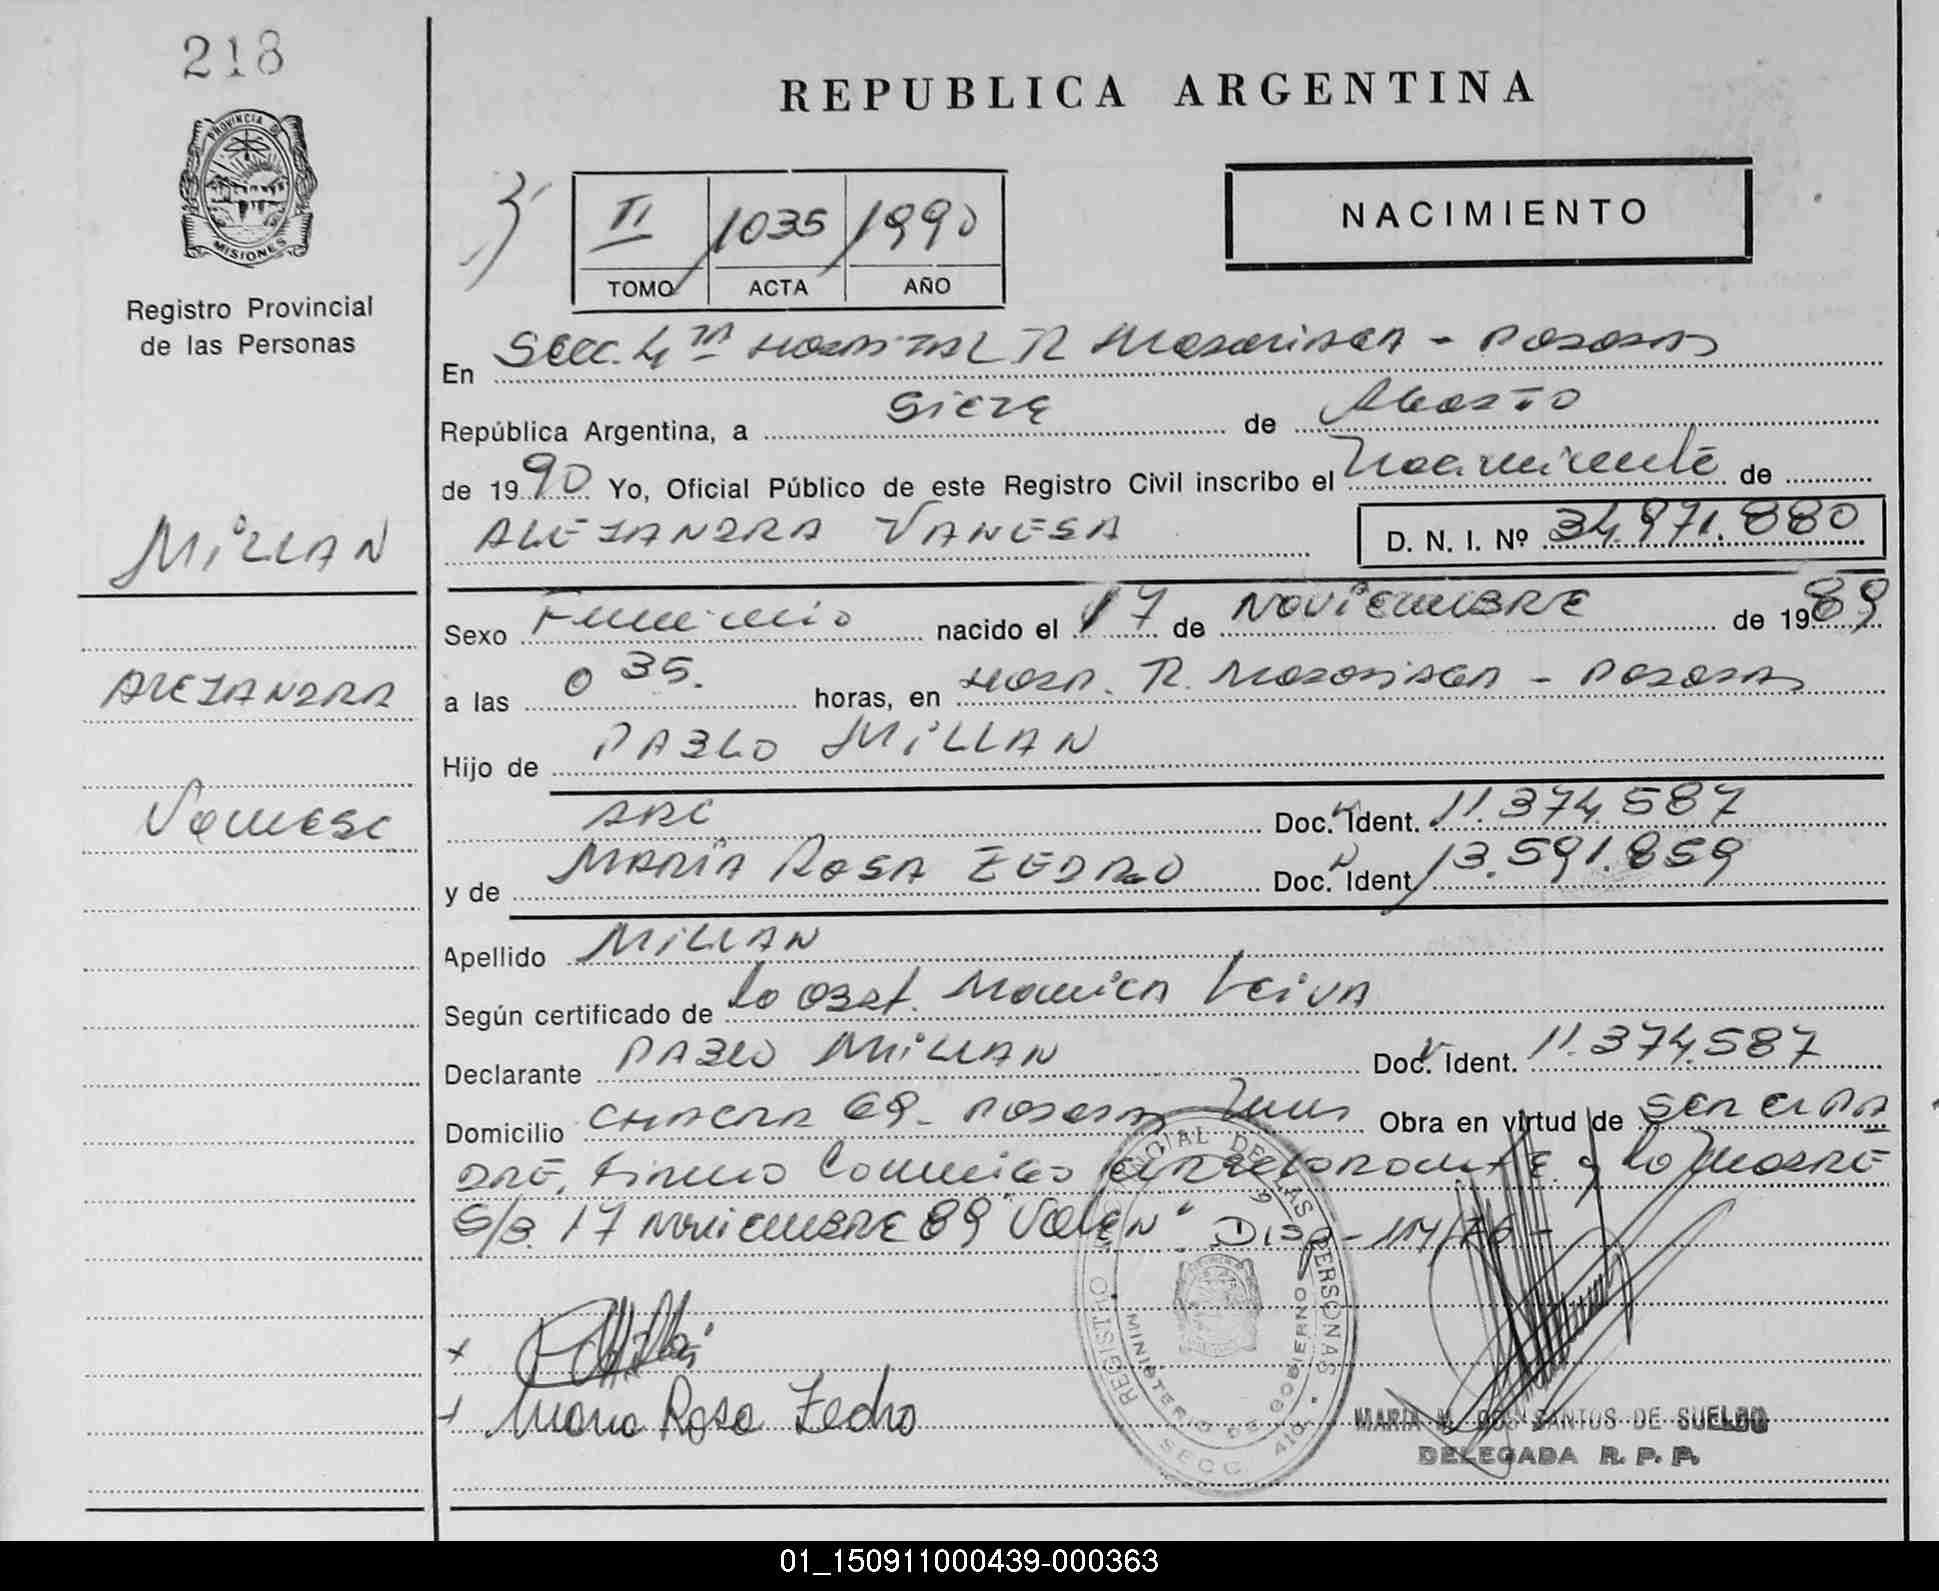 218
REPUBLICA ARGENTINA
PROVINCIA DE
MISIONES
Registro Provincial
de las Personas
II 1035 1990
TOMO ACTA AÑO
NACIMIENTO
En Secc. 4ta Hospital R Madariaga - Posadas
República Argentina, a Siete de Agosto
de 1990 Yo, Oficial Público de este Registro Civil inscribo el Nacimiento de
ALEJANDRA VANESA D. N. I. Nº 34.971.880
MILLAN
ALEJANDRA
Vanesa
Sexo Femenino nacido el 17 de NOVIEMBRE de 1989
a las 0 35. horas, en Hosp. R. Madariaga - Posadas
Hijo de PABLO MILLAN
ARG Doc. Ident. 11.374.587
y de MARIA ROSA ZEDRO Doc. Ident 13.591.859
Apellido MILLAN
Según certificado de la Obst. Monica Leiva
Declarante PABLO MILLAN Doc. Ident. 11.374.587
Domicilio CHACRA 69 - Posadas Mnes Obra en virtud de SER EL PA
DRE, firmo Conmigo el y la Madre
S/B. 17 NOVIEMBRE 89 "Valen" Disp - 114/76 -
REGISTRO PROVINCIAL DE LAS PERSONAS
MINISTERIO DE GOBIERNO
SECC. 4ta.
Maria Rosa Zedro
MARIA M. DOS SANTOS DE SUELDO
DELEGADA R. P. P.
01_150911000439-000363